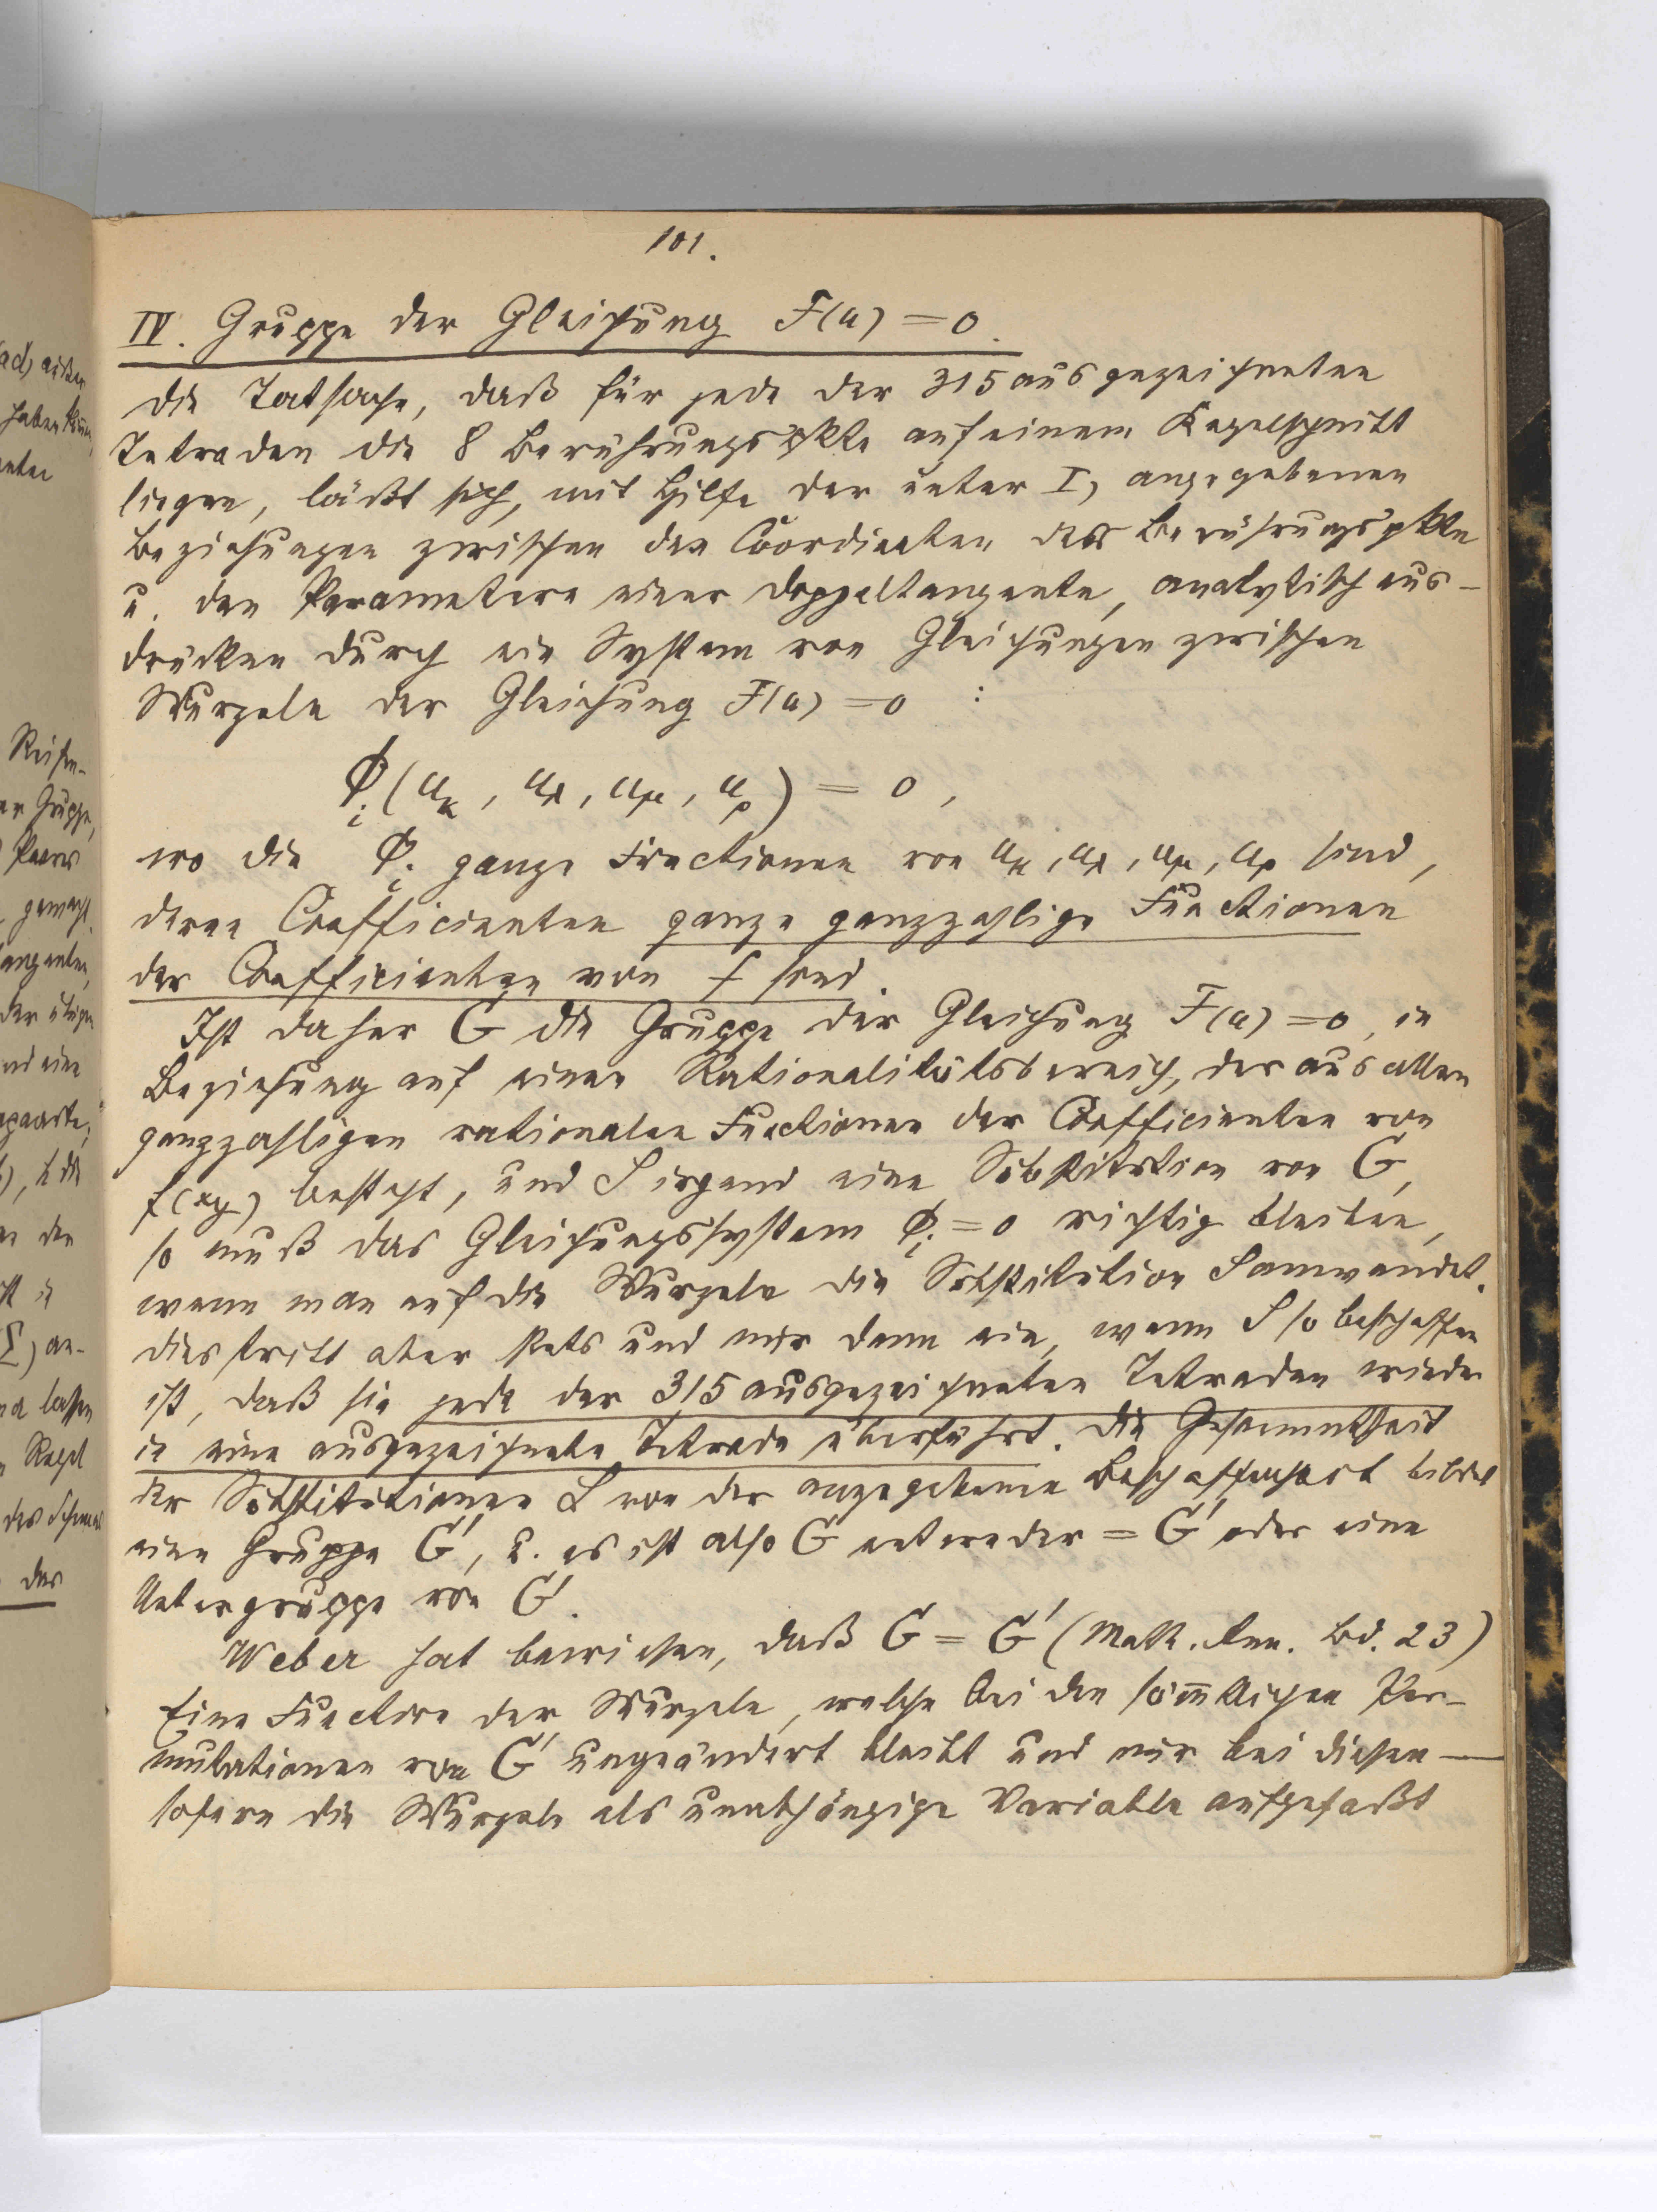 101.
IV. Gruppe der Gleichung F(u) = 0.
Die Tatsache, daß für jede der 315 ausgezeichneten
Tetraden die 8 Berührungspkte auf einem Kegelschnitt
liegen, läßt sich, mit Hilfe der unter I, angegebenen
Beziehungen zwischen den Coordinaten der Berührungspkte
u. den Parametern einer Doppeltangente, analytisch aus-
drücken durch ein System von Gleichungen zwischen
Wurzeln der Gleichung F(u) = 0 :
Φ_i (u_κ, u_λ, u_μ, u_ρ) = 0,
wo die Φ_i ganze Functionen von u_κ, u_λ, u_μ, u_ρ sind,
deren Coefficienten ganze ganzzahlige Functionen
der Coefficienten von f sind.
Ist daher G die Gruppe der Gleichung F(u) = 0, in
Beziehung auf einen Rationalitätsbereich, der aus allen
ganzzahligen rationalen Functionen der Coefficienten von
f(xy) besteht, und S irgend eine Substitution von G,
so muß das Gleichungssystem Φ_i = 0 richtig bleiben,
wenn man auf die Wurzeln die Substitution S anwendet.
Dies tritt aber stets und nur dann ein, wenn S so beschaffen
ist, daß sie jede der 315 ausgezeichneten Tetraden wieder
in eine ausgezeichnete Tetrade überführt. Die Gesammtheit
der Substitutionen S von der angegebenen Beschaffenheit bildet
eine Gruppe G', u. es ist also G entweder = G' oder eine
Untergruppe von G'.
Weber hat bewiesen, daß G = G' (Math. Ann. Bd. 23)
Eine Function der Wurzeln, welche bei den sämmtlichen Per-
mutationen von G' ungeändert bleibt und nur bei diesen —
sofern die Wurzeln als unabhängige Variable aufgefaßt